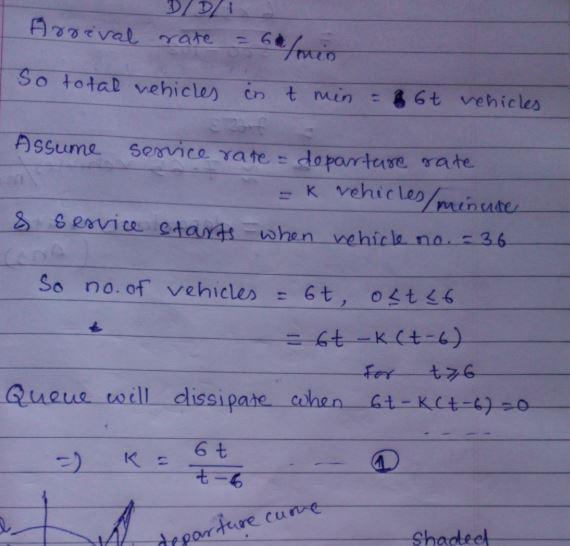 D/D/1
Arrival rate = 6/min
So total vehicles in t min = 6t vehicles
Assume service rate = departure rate
= K vehicles/minute
& service starts when vehicle no. = 36
So no. of vehicles = 6t, 0≤t≤6
= 6t - K(t-6)
For t≥6
Queue will dissipate when 6t-K(t-6)=0
....
=) K = 6t / t-6 --- ①
departure curve
Shaded